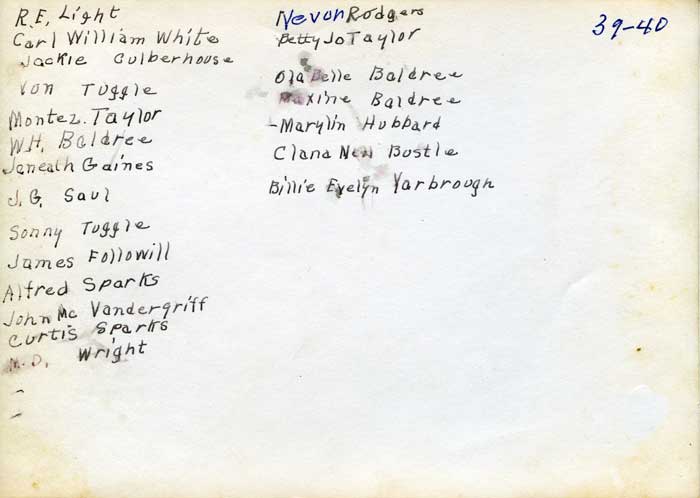 R.E. Light
Carl William White
Jackie Culberhouse
Von Tuggle
Montez Taylor
W.H. Baldree
Jeneath Gaines
J.G. Saul
Sonny Tuggle
James Followill
Alfred Sparks
John Mc Vandergriff
Curtis Sparks
M.D. Wright
Nevon Rodgers
Betty Jo Taylor
Ola Belle Baldree
Maxine Baldree
-Marylin Hubbard
Clana Bostle
Billie Evelyn Yarbrough
39-40